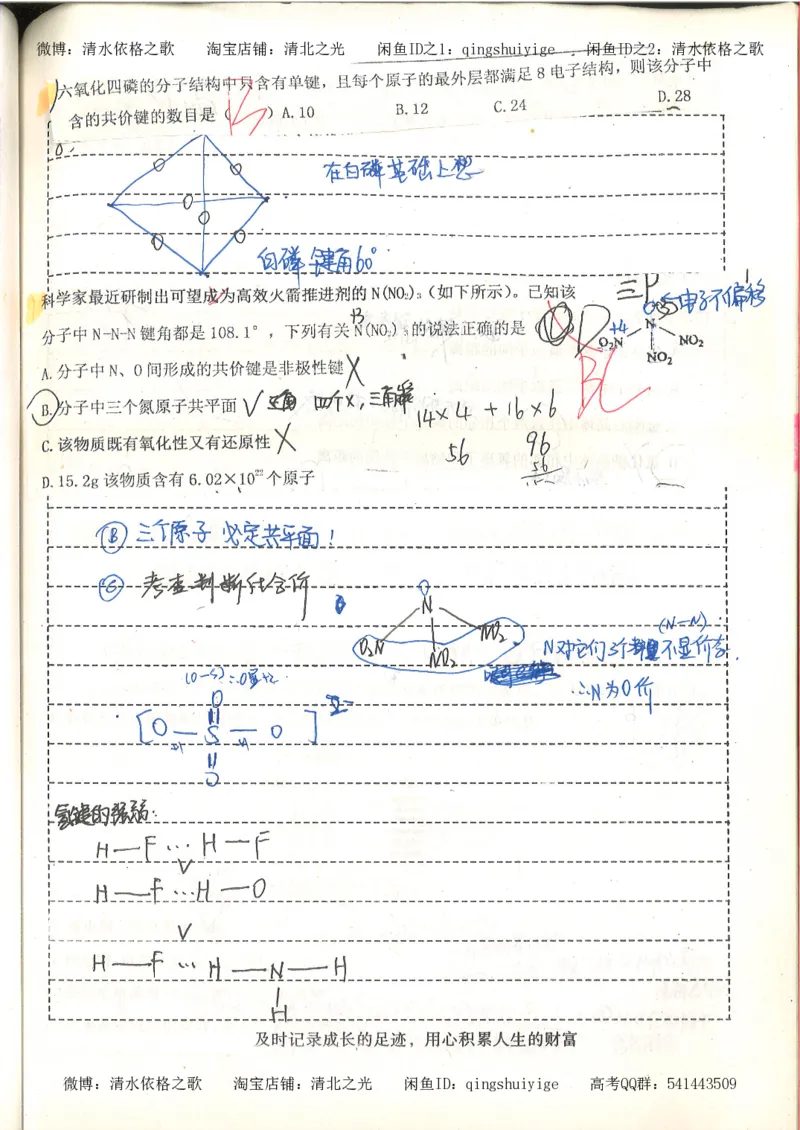 微博：清水依格之歌 淘宝店铺：清北之光 闲鱼ID之1：qingshuiyige 闲鱼ID之2：清水依格之歌
六氧化四磷的分子结构中只含有单键，且每个原子的最外层都满足8电子结构，则该分子中
含的共价键的数目是（B）A.10 B.12 C.24 D.28
在白磷基础上想
白磷键角60°
科学家最近研制出可望成为高效火箭推进剂的N(NO₂)₃（如下所示）。已知该
分子中N-N-N键角都是108.1°，下列有关N(NO₂)₃的说法正确的是
电子不偏移
+4
N
O₂N NO₂
NO₂
BC
A.分子中N、O间形成的共价键是非极性键 X
B.分子中三个氮原子共平面 √
14×4 + 16×6
C.该物质既有氧化性又有还原性 X
56 96
56
D.15.2g该物质含有6.02×10²²个原子
Ⓑ 三个原子必定共平面！
Ⓒ 考查判断化合价
0
N
O₂N NO₂
NO₂
(N-N)
N对它们3个不显价态.
∴N为0价
[O-S-O]²⁻
O
O
氢键的强弱：
H—F…H—F
∨
H—F…H—O
∨
H—F…H—N—H
H
及时记录成长的足迹，用心积累人生的财富
微博：清水依格之歌 淘宝店铺：清北之光 闲鱼ID：qingshuiyige 高考QQ群：541443509